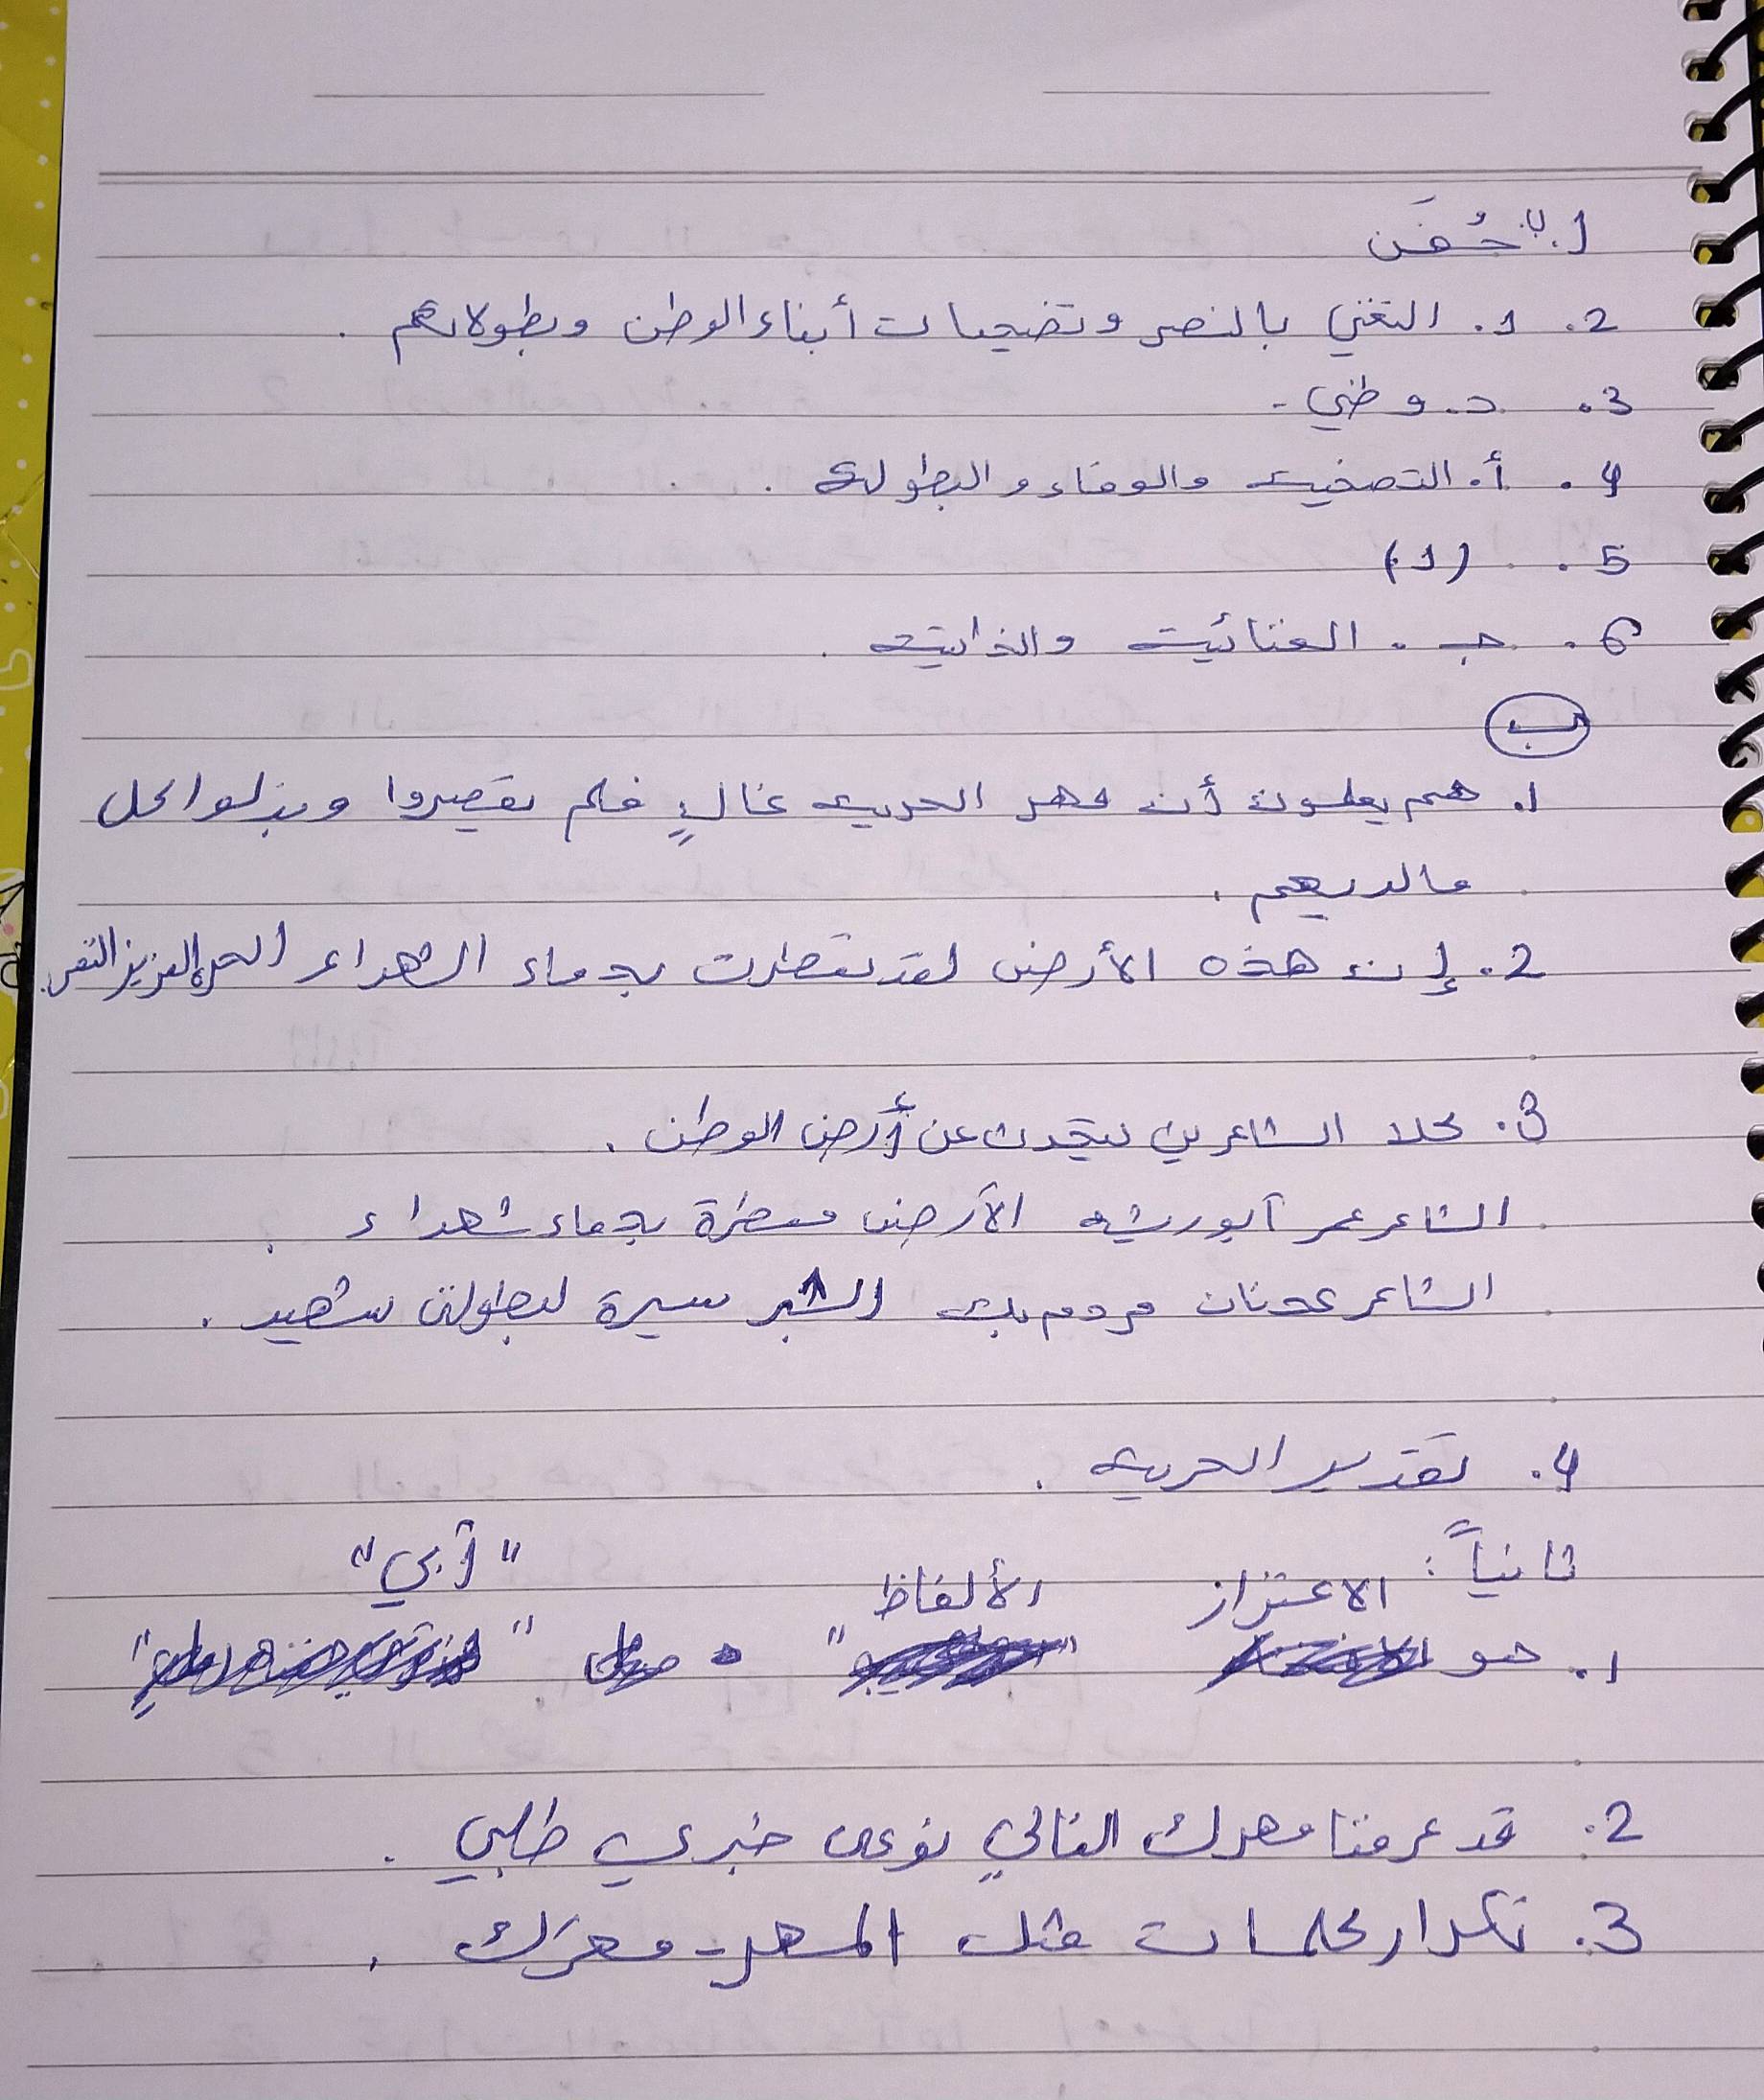 1. ب. حُفَن
2. 1. التغني بالنصر وتضحيات أبناء الوطن وبطولاتهم .
3. د. وطني -
4. أ. التضحية والوفاء و البطولة .
5. (1)
6. جـ . الغنائية والذاتية .
ب
1. هم يعلمون أن مهر الحرية غالٍ فلم يقصروا وبذلوا كل
مالديهم .
2. إن هذه الأرض لقد تعطرت بدماء الشهداء الحرة العزيز النفس.
3. كلا الشاعرين ليتحدث عن أرض الوطن .
الشاعر عمر أبوريشه الأرض معطرة بدماء شهداء .
الشاعر عدنان مردم بك الشبر سيرة لبطولة شهيد .
4. تقدير الحرية .
ثانياً :
1. هو الاعتزاز الألفاظ " " . مثل "أبي"
2. قد عرفنا مهرك الغالي نوعه خبري طلبي .
3. تكرار كلمات مثل المهر - مهرك .